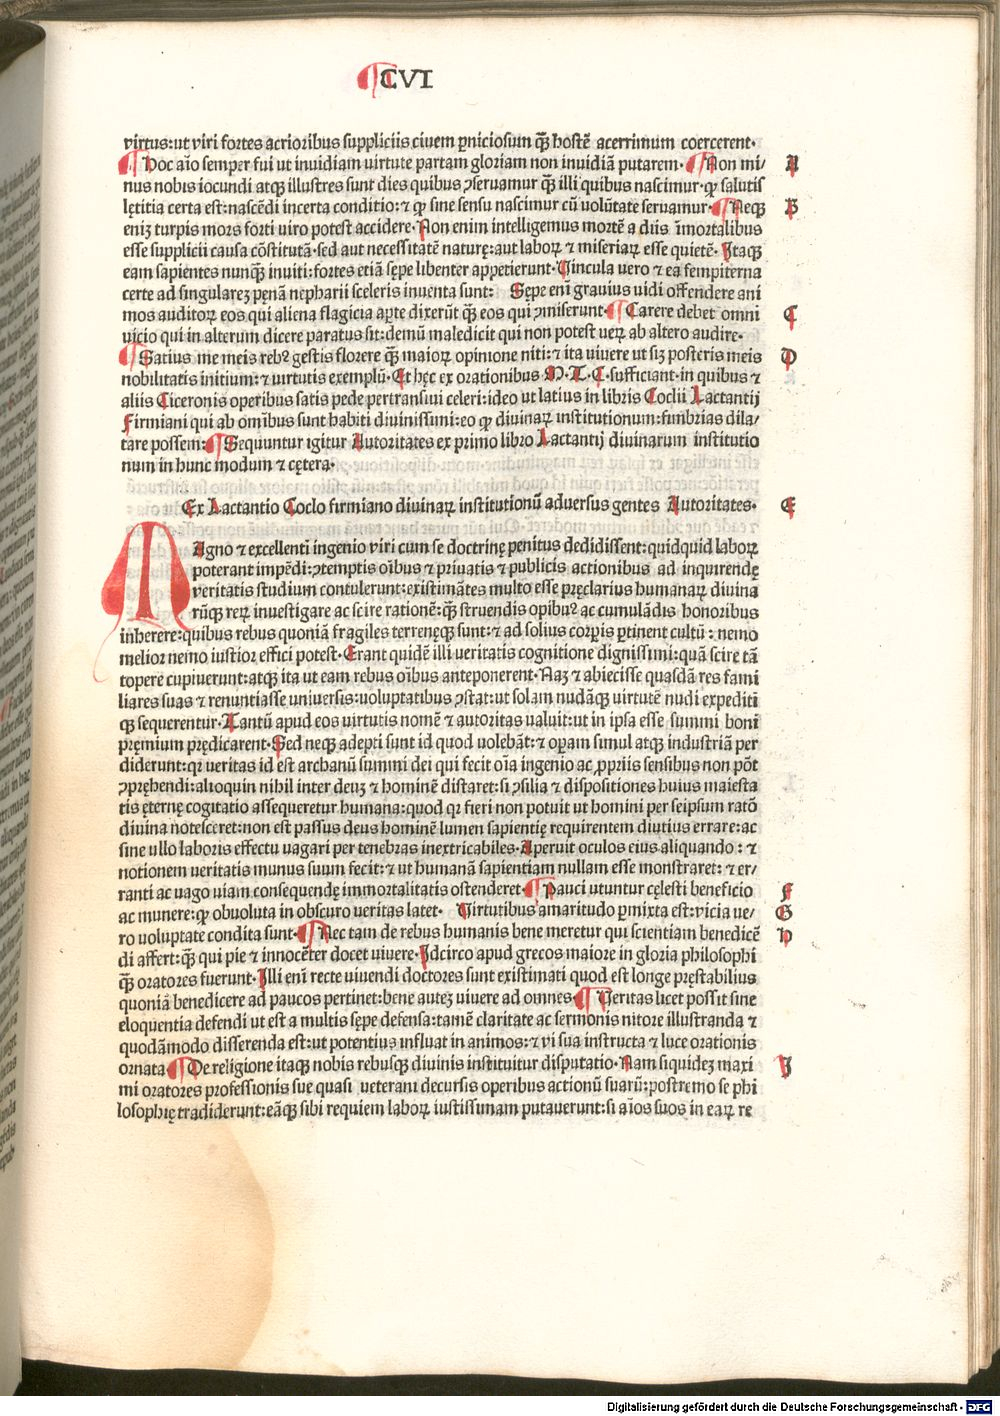 ¶CVI
virtus:ut viri fortes acrioribus suppliciis ciuem ꝑniciosum qꝫ̃ hostẽ acerrimum coercerent·
¶Hoc aĩo semper fui ut inuidiam uirtute partam gloriam non inuidiã putarem·¶Non mi/ A
nus nobis iocundi atqꝫ illustres sunt dies quibus ꝯseruamur qꝫ̃ illi quibus nascimur·ꝙ salutis
lętitia certa est:nascẽdi incerta conditio:⁊ ꝙ sine sensu nascimur cũ uolũtate seruamur·¶Neqꝫ B
eniꝫ turpis mors forti uiro potest accidere·Non enim intelligemus mortẽ a diis ĩmortalibus
esse supplicii causa cõstitutã·sed aut necessitatẽ naturę:aut laboꝝ ⁊ miseriaꝝ esse quietẽ·Itaqꝫ
eam sapientes nunqꝫ̃ inuiti:fortes etiã sępe libenter appetierunt·Vincula uero ⁊ ea sempiterna
certe ad singulareꝫ penã nepharii sceleris inuenta sunt: Sępe enĩ grauius uidi offendere ani
mos auditoꝝ eos qui aliena flagicia aꝑte dixerũt qꝫ̃ eos qui ꝯmiserunt·¶Carere debet omni C
uicio qui in alterum dicere paratus sit:demũ maledicit qui non potest ueꝝ ab altero audire·
¶Satius me meis rebꝰ gestis florere qꝫ̃ maioꝝ opinione niti:⁊ ita uiuere ut siꝫ posteris meis D
nobilitatis initium:⁊ uirtutis exemplũ·Et hęc ex orationibus M·T·C·sufficiant·in quibus ⁊
aliis Ciceronis operibus satis pede pertransiui celeri:ideo ut latius in libris Coclii Lactantij
Firmiani qui ab omĩbus sunt habiti diuinissimi:eo ꝙ diuinaꝝ institutionum:fimbrias dila/
tare possem:¶Sequuntur igitur Autoritates ex primo libro Lactantij diuinarum institutio
num in hunc modum ⁊ cętera·
Ex Lactantio Coclo firmiano diuinaꝝ institutionũ aduersus gentes Autoritates· E
MAgno ⁊ excellenti ingenio viri cum se doctrinę penitus dedidissent:quidquid laboꝝ
poterant impẽdi:ꝯtemptis oĩbus ⁊ priuatis ⁊ publicis actionibus ad inquirendę
veritatis studium contulerunt:existimãtes multo esse pręclarius humanaꝝ diuina
rũqꝫ reꝝ inuestigare ac scire rationẽ:qꝫ̃ struendis opibuꝰ ac cumulãdis honoribus
inherere:quibus rebus quoniã fragiles terrenęqꝫ sunt:⁊ ad solius corꝑis ꝑtinent cultũ: nemo
melior nemo iustior effici potest·Erant quidẽ illi ueritatis cognitione dignissimi:quã scire tã
topere cupiuerunt:atqꝫ ita ut eam rebus oĩbus anteponerent·Naꝫ ⁊ abiecisse quasdã res fami
liares suas ⁊ renuntiasse uniuersis:uoluptatibus ꝯstat:ut solam nudãqꝫ uirtutẽ nudi expediti
qꝫ sequerentur·Tantũ apud eos uirtutis nomẽ ⁊ autoritas ualuit:ut in ipsa esse summi boni
pręmium prędicarent·Sed neqꝫ adepti sunt id quod uolebãt:⁊ oꝑam simul atqꝫ industriã per
diderunt:qꝛ ueritas id est archanũ summi dei qui fecit oĩa ingenio ac ꝓpriis sensibus non põt
ꝯprẹhendi:alioquin nihil inter deuꝫ ⁊ hominẽ distaret:si ꝯsilia ⁊ dispositiones huius maiesta
tis ęternę cogitatio assequeretur humana:quod qꝛ fieri non potuit ut homini per seipsum ratõ
diuina notesceret:non est passus deus hominẽ lumen sapientię requirentem diutius errare:ac
sine ullo laboris effectu uagari per tenebras inextricabiles·Aperuit oculos eius aliquando:⁊
notionem ueritatis munus suum fecit:⁊ ut humanã sapientiam nullam esse monstraret:⁊ er/
ranti ac uago uiam consequendę immortalitatis ostenderet·¶Pauci utuntur cęlesti beneficio F
ac munere:ꝙ obuoluta in obscuro ueritas latet· Virtutibus amaritudo ꝑmixta est:vicia ue/ G
ro uoluptate condita sunt·¶Nec tam de rebus humanis bene meretur qui scientiam benedicẽ H
di affert:qꝫ̃ qui pie ⁊ innocẽter docet uiuere·Idcirco apud grecos maiore in gloria philosophi
qꝫ̃ oratores fuerunt·Illi enĩ recte uiuendi doctores sunt existimati quod est longe pręstabilius
quoniã benedicere ad paucos pertinet:bene auteꝫ uiuere ad omnes·¶Veritas licet possit sine
eloquentia defendi ut est a multis sępe defensa:tamẽ claritate ac sermonis nitore illustranda ⁊
quodãmodo disserenda est:ut potentius influat in animos:⁊ ui sua instructa ⁊ luce orationis
ornata·¶De religione itaqꝫ nobis rebusqꝫ diuinis instituitur disputatio·Nam siquideꝫ maxi J
mi oratores professionis sue quasi ueterani decursis operibus actionũ suarũ:postremo se phi
losophię tradiderunt:eãqꝫ sibi requiem laboꝝ iustissimam putauerunt:si aĩos suos in eaꝝ re
Digitalisierung gefördert durch die Deutsche Forschungsgemeinschaft · DFG